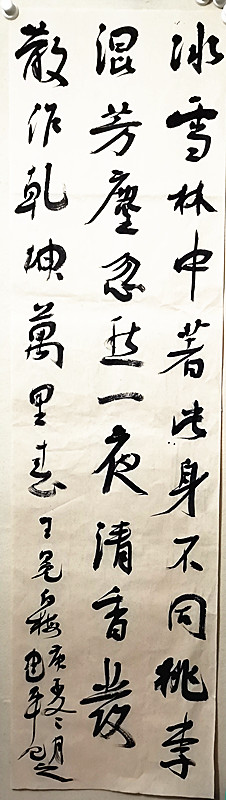 冰雪林中著此身不同桃李
混芳塵忽然一夜清香發
散作乾坤萬里春王冕白梅庚